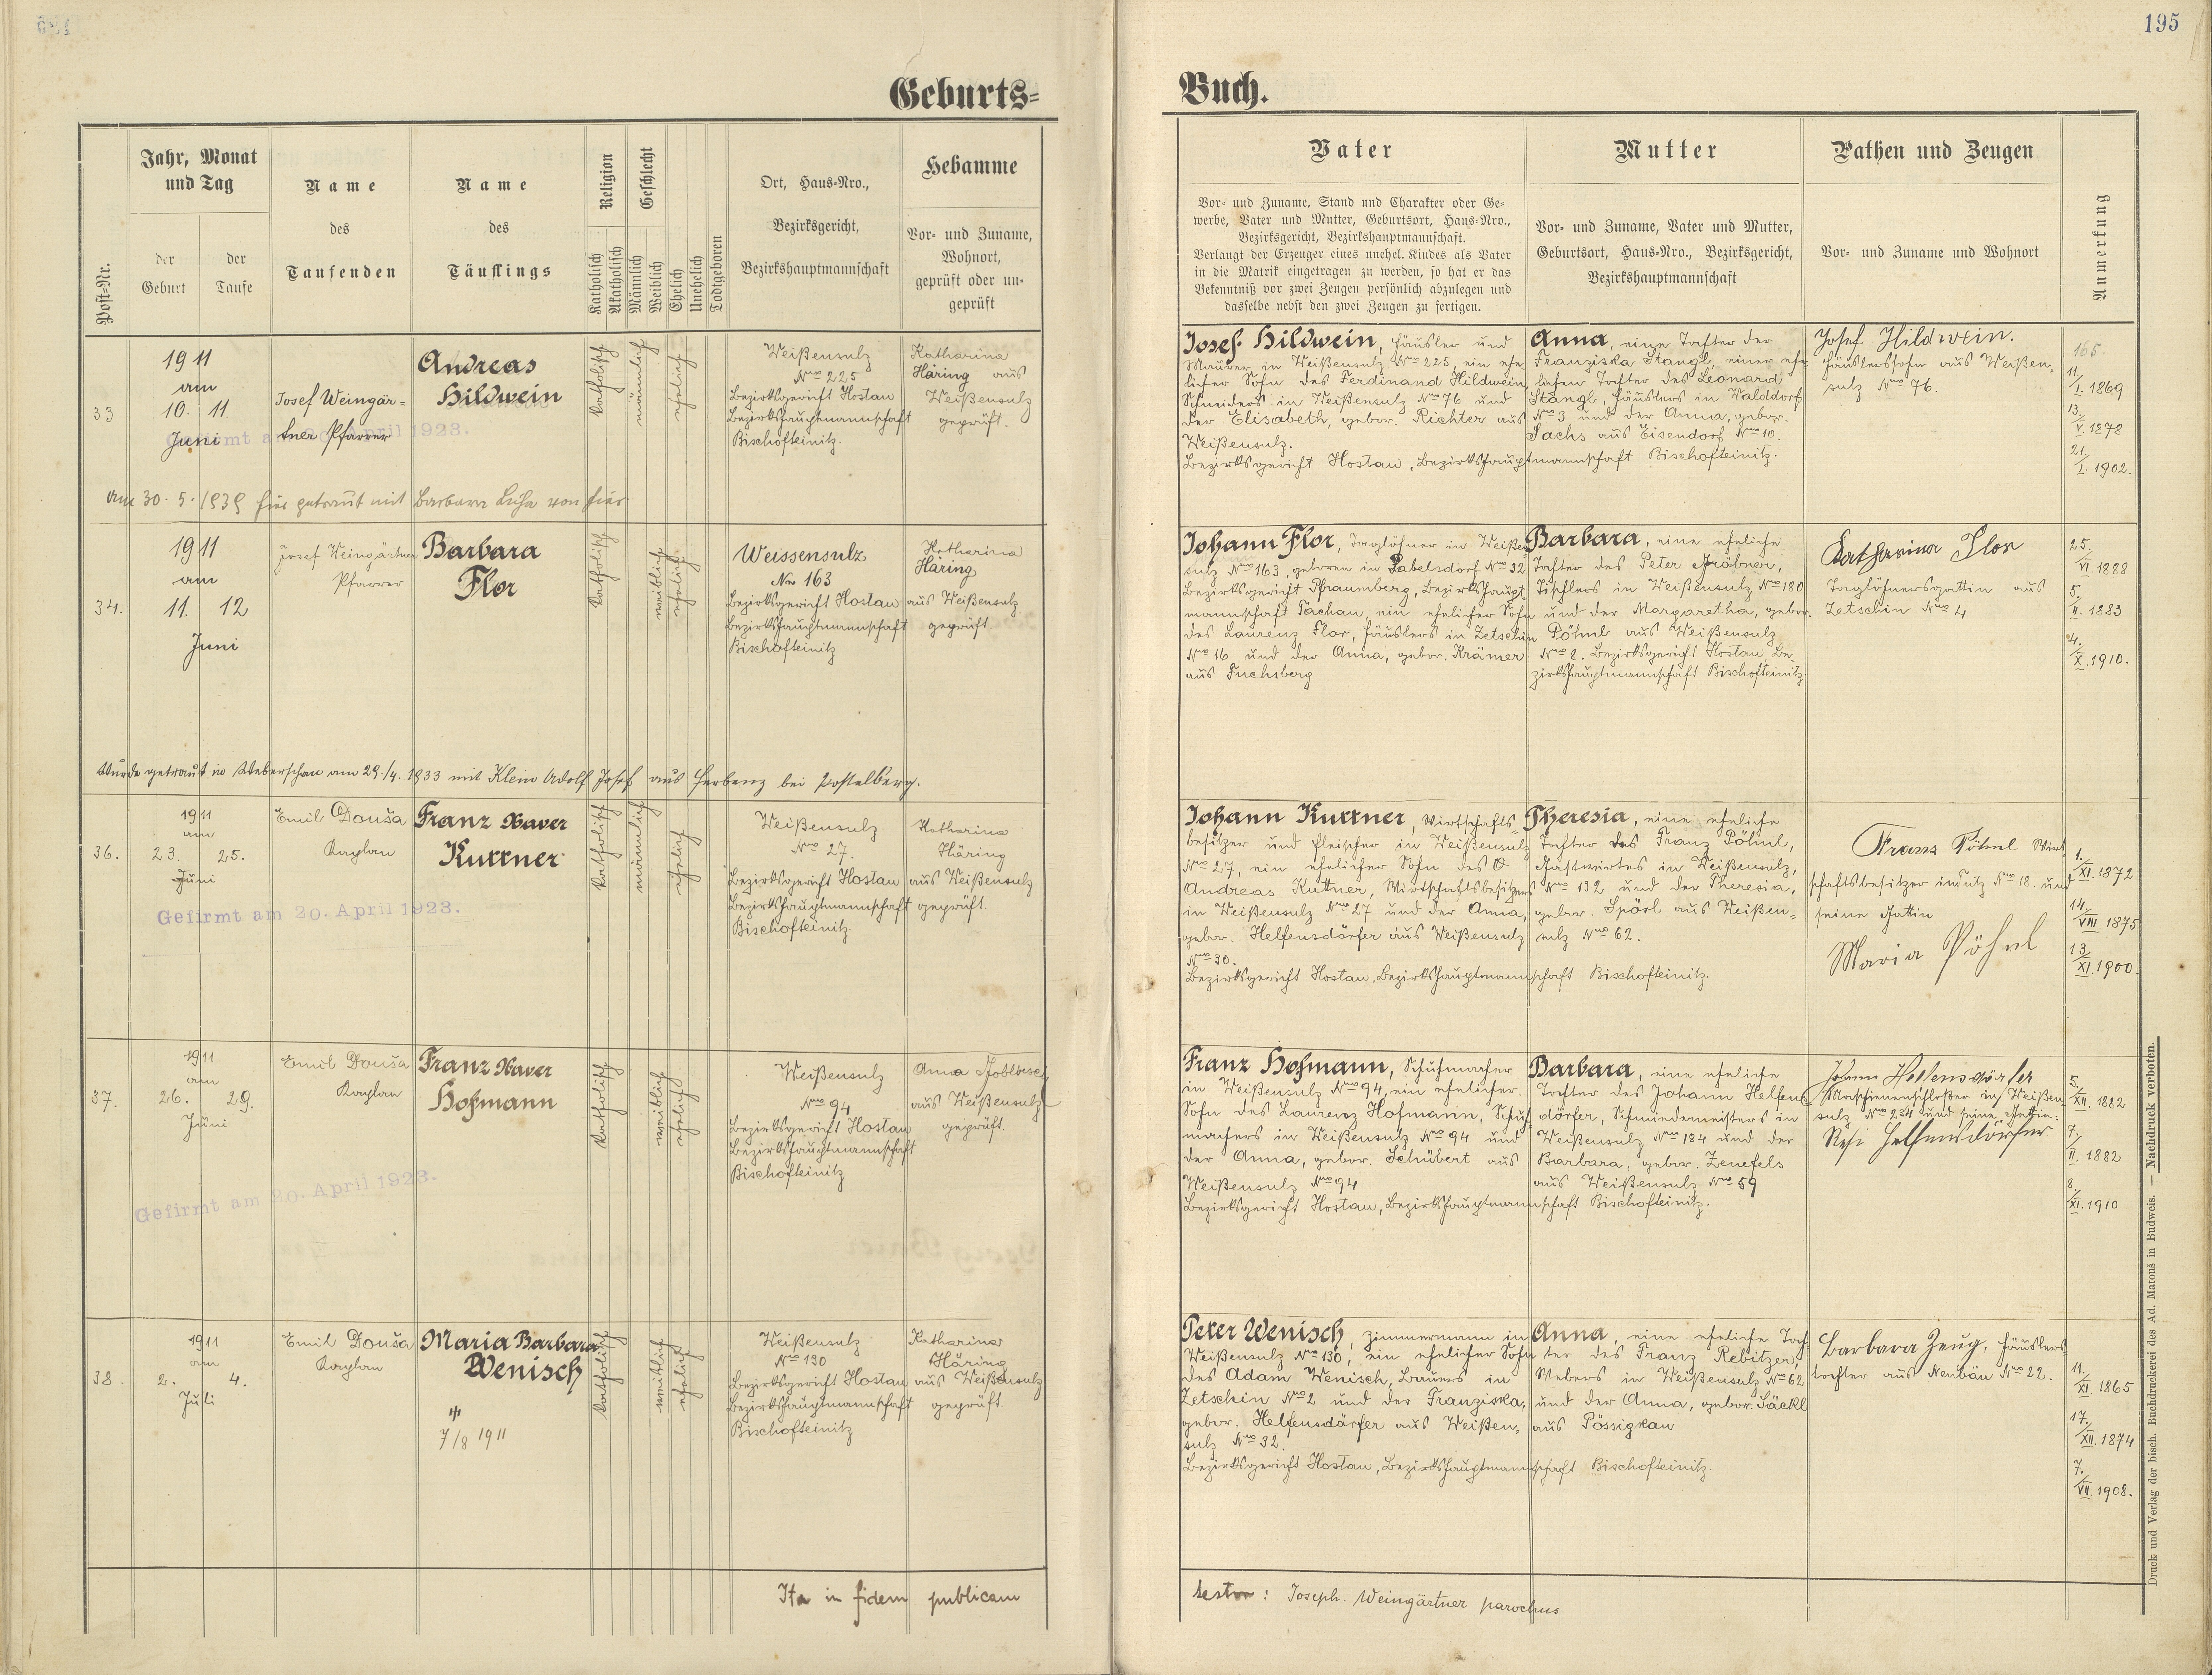 195
Geburts-
Buch.
Post-Nr.
Jahr, Monat
und Tag
der
Geburt
der
Taufe
Name
des
Taufenden
Name
des
Täuflings
Religion
Katholisch
Akatholisch
Geschlecht
Männlich
Weiblich
Ehelich
Unehelich
Todtgeboren
Ort, Haus-Nro.,
Bezirksgericht,
Bezirkshauptmannschaft
Hebamme
Vor- und Zuname,
Wohnort,
geprüft oder un-
geprüft
Vater
Vor- und Zuname, Stand und Charakter oder Ge-
werbe, Vater und Mutter, Geburtsort, Haus-Nro.,
Bezirksgericht, Bezirkshauptmannschaft.
Verlangt der Erzeuger eines unehel. Kindes als Vater
in die Matrik eingetragen zu werden, so hat er das
Bekenntniß vor zwei Zeugen persönlich abzulegen und
dasselbe nebst den zwei Zeugen zu fertigen.
Mutter
Vor- und Zuname, Vater und Mutter,
Geburtsort, Haus-Nro., Bezirksgericht,
Bezirkshauptmannschaft
Pathen und Zeugen
Vor- und Zuname und Wohnort
Anmerkung
33
1911
am
10. 11.
Juni
Josef Weingär=
tner Pfarrer
Gefirmt am 20. April 1923.
Andreas
Hildwein
katholisch
männlich
ehelich
Weißensulz
Nro 225
Bezirksgericht Hostau
Bezirkshauptmannschaft
Bischofteinitz.
Katharina
Häring aus
Weißensulz
geprüft.
Josef Hildwein, Häusler und
Maurer in Weißensulz Nro 225, ein ehe-
licher Sohn des Ferdinand Hildwein,
Schneiders in Weißensulz Nro 76 und
der Elisabeth, gebor. Richter aus
Weißensulz.
Bezirksgericht Hostau, Bezirkshauptmannschaft Bischofteinitz.
Anna, eine Tochter der
Franziska Stangl, einer ehe-
lichen Tochter des Leonard
Stangl, Häuslers in Walddorf
Nro 3 und der Anna, gebor.
Sachs aus Eisendorf Nro 10.
Josef Hildwein.
Häuslerssohn aus Weißen-
sulz Nro 76.
165.
11./I. 1869
13./V. 1878
21./I. 1902.
am 30. 5. 1939 hier getraut mit Barbara von hier
34.
1911
am
11. 12
Juni
Josef Weingärtner
Pfarrer
Barbara
Flor
katholisch
weiblich
ehelich
Weissensulz
Nro 163
Bezirksgericht Hostau
Bezirkshauptmannschaft
Bischofteinitz
Katharina
Häring
aus Weißensulz
geprüft.
Johann Flor, Taglöhner in Weißen
sulz Nro 163, geboren in Labelsdorf Nro 32
Bezirksgericht Pfraumberg, Bezirkshaupt-
mannschaft Tachau, ein ehelicher Sohn
des Laurenz Flor, Häuslers in Zetschin
Nro 16 und der Anna, gebor. Krämer
aus Fuchsberg
Barbara, eine eheliche
Tochter des Peter Gröbner,
Tischlers in Weißensulz Nro 180
und der Margaretha, gebor.
Pöhnl aus Weißensulz
Nro 8. Bezirksgericht Hostau, Be-
zirkshauptmannschaft Bischofteinitz
Katharina Flor
Taglöhnersgattin aus
Zetschin Nro 4
25./VI 1888
5./II. 1883
4./X. 1910.
Wurde getraut in Weberschan am 29./4. 1933 mit Klein Adolf Josef aus Ferbenz bei Postelberg.
36.
1911
am
23. 25.
Juni
Emil Douša
Kaplan
Gefirmt am 20. April 1923.
Franz Xaver
Kuttner
katholisch
männlich
ehelich
Weißensulz
Nro 27.
Bezirksgericht Hostau
Bezirkshauptmannschaft
Bischofteinitz.
Katharina
Häring
aus Weißensulz
geprüft.
Johann Kuttner, Wirtschafts-
besitzer und Fleischer in Weißensulz
Nro 27, ein ehelicher Sohn des
Andreas Kuttner, Wirtschaftsbesitzers
in Weißensulz Nro 27 und der Anna,
gebor. Helfensdörfer aus Weißensulz
Nro 30.
Bezirksgericht Hostau, Bezirkshauptmannschaft Bischofteinitz.
Theresia, eine eheliche
Tochter des Franz Pöhnl,
Gastwirtes in Weißensulz,
Nro 132 und der Theresia,
gebor. Spörl aus Weißen-
sulz Nro 62.
Franz Pöhnl Wirt
schaftsbesitzer in Nro 18. und
seine Gattin
Maria Pöhnl
1./XI. 1872
14./VIII 1875
13./XI. 1900.
37.
1911
am
26. 29.
Juni
Emil Douša
Kaplan
Gefirmt am 20. April 1923.
Franz Xaver
Hofmann
katholisch
weiblich
ehelich
Weißensulz
Nro 94
Bezirksgericht Hostau
Bezirkshauptmannschaft
Bischofteinitz
Anna
aus Weißensulz
geprüft.
Franz Hofmann, Schuhmacher
in Weißensulz Nro 94, ein ehelicher
Sohn des Laurenz Hofmann, Schuh-
machers in Weißensulz Nro 94 und
der Anna, gebor. Schübert aus
Weißensulz Nro 94
Bezirksgericht Hostau, Bezirkshauptmannschaft Bischofteinitz.
Barbara, eine eheliche
Tochter des Johann Helfens-
dörfer, Schmiedemeisters in
Weißensulz Nro 184 und der
Barbara, gebor. Zenefels
aus Weißensulz Nro 59
Johann Helfensdörfer
Maschienenschloßer in Weißen-
sulz Nro 234 und seine Gattin:
Resi Helfensdörfer
5./XII. 1882
7./II. 1882
8./XI. 1910
38.
1911
am
2. 4.
Juli
Emil Douša
Kaplan
Maria Barbara
Wenisch
7/8 1911
katholisch
weiblich
ehelich
Weißensulz
Nro 130
Bezirksgericht Hostau
Bezirkshauptmannschaft
Bischofteinitz
Katharina
Häring
aus Weißensulz
geprüft.
Peter Wenisch, Zimmermann in
Weißensulz Nro 130, ein ehelicher Sohn
des Adam Wenisch, Bauers in
Zetschin Nro 2 und der Franziska,
gebor. Helfensdörfer aus Weißen-
sulz Nro 32.
Bezirksgericht Hostau, Bezirkshauptmannschaft Bischofteinitz.
Anna, eine eheliche Toch-
ter des Franz Rebitzer,
Webers in Weißensulz Nro 62
und der Anna, gebor. Säckl
aus Pössigkau
Barbara Zeug, Häuslers-
tochter aus Neubäu Nro 22.
11./XI. 1865
17./XII. 1874
7./VII. 1908.
Ita in fidem publicam
testor: Joseph. Weingärtner parochus
Druck und Verlag der bisch. Buchdruckerei des Ad. Matouš in Budweis. — Nachdruck verboten.